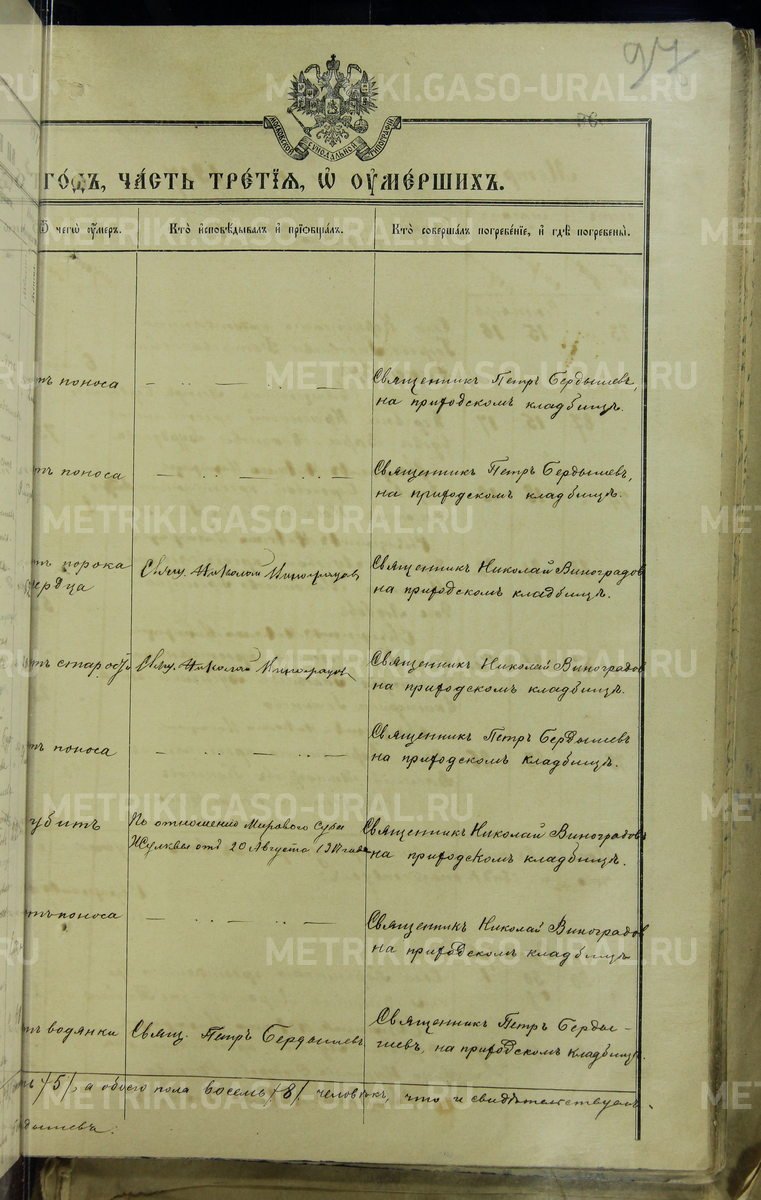 97
МОСКОВСКОЙ СѴНОДАЛЬНОЙ ТИПОГРАФІИ
ГО́ДЪ, ЧА́СТЬ ТРЕ́ТЇѦ, Ѡ ОУМЕ́РШИХЪ.
Ѿ чегѡ̀ оу́меръ.
Кто̀ и҆сповѣ́дывалъ и҆ прїѡбща́лъ.
Кто̀ соверша́лъ погребе́нїе, и҆ гдѣ̀ погребены̀.
тъ поноса
Священникъ Петръ Бердышевъ,
на приходскомъ кладбищѣ.
тъ поноса
Священникъ Петръ Бердышевъ,
на приходскомъ кладбищѣ.
тъ порока
сердца
Свящ. Николай Виноградовъ
Священникъ Николай Виноградов
на приходскомъ кладбищѣ.
тъ старости
Свящ. Николай Виноградовъ
Священникъ Николай Виноградов
на приходскомъ кладбищѣ.
тъ поноса
Священникъ Петръ Бердышевъ
на приходскомъ кладбищѣ.
убитъ
По отношенію Мирового Судьи
отъ 20 Августа года
Священникъ Николай Виноградовъ
на приходскомъ кладбищѣ.
тъ поноса
Священникъ Николай Виноградов
на приходскомъ кладбищѣ
тъ водянки
Свящ. Петръ Бердышевъ
Священникъ Петръ Берды-
шевъ, на приходскомъ кладбищѣ.
ть /5/, а обоего пола восемь /8/ человѣкъ, что и свидѣтельствуемъ.
дышевъ.
METRIKI.GASO-URAL.RU